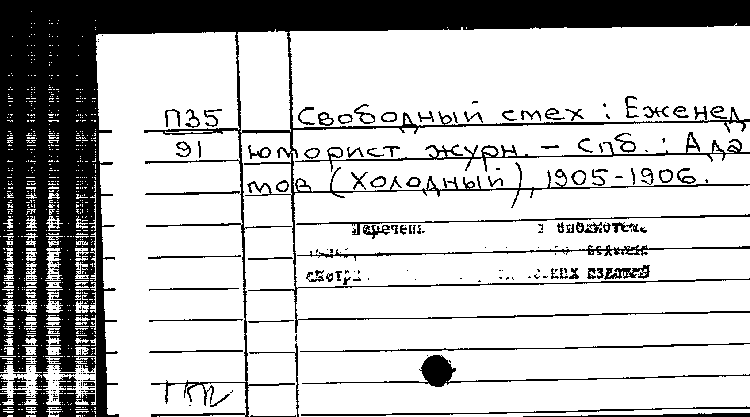 П35 Свободный смех : Еженед.
91 юморист. журн. – Спб. : Ада
мов (Холодный), 1905-1906.
Перечень библиотек,
изданий